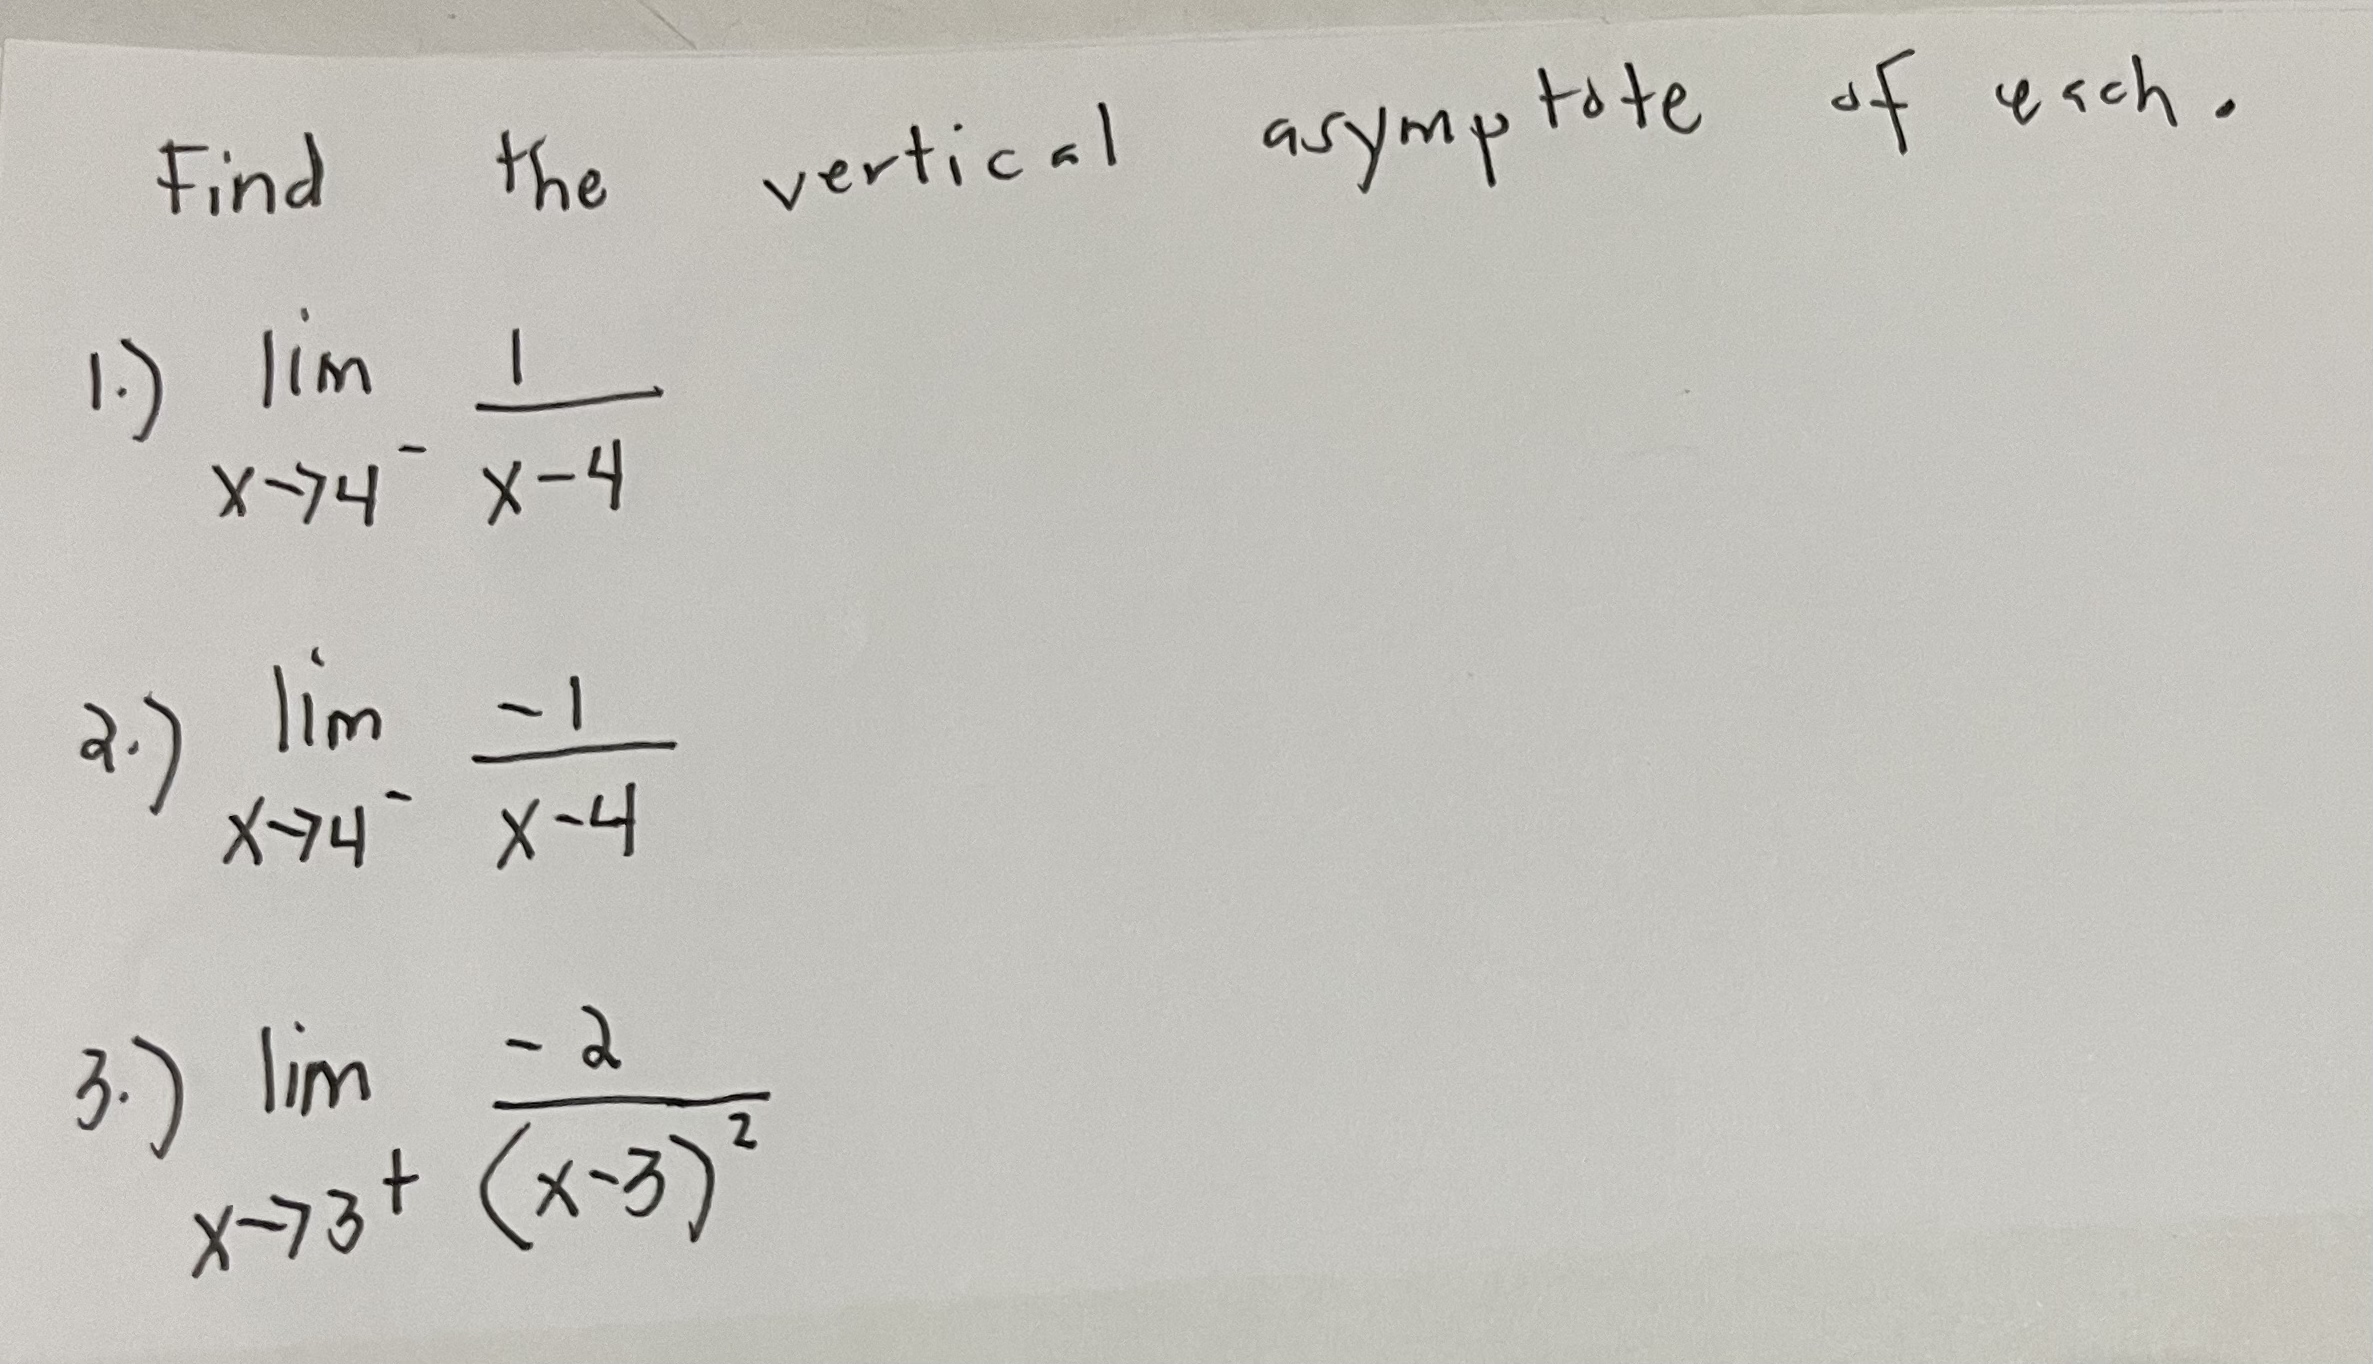 Find the vertical asymptote of each.
1.) lim 1
x→4⁻ x-4
2.) lim -1
x→4⁻ x-4
3.) lim -2
x→3⁺ (x-3)²